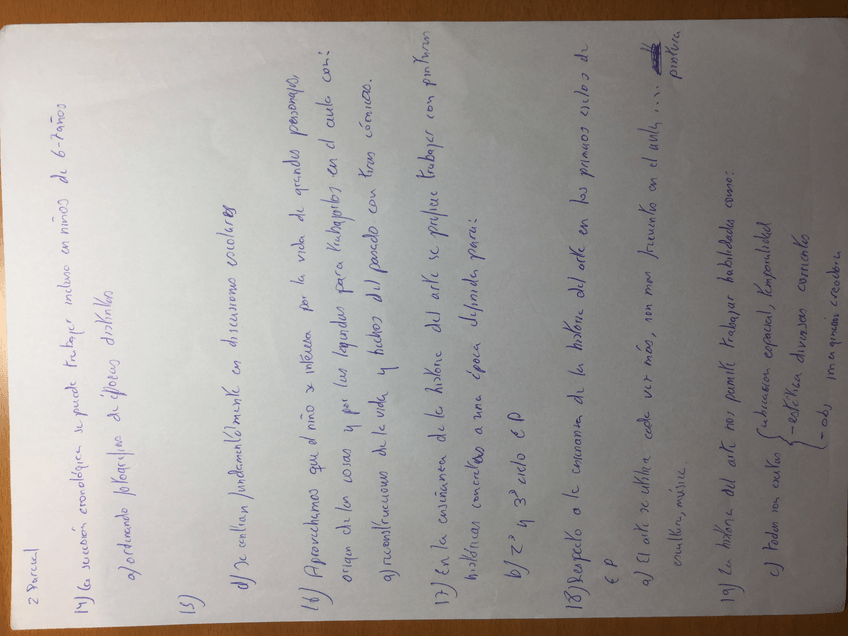 2 Parcial
14) La sucesión cronológica se puede trabajar incluso en niños de 6-7 años
a) ordenando fotografías de épocas distintas
15)
d) se centran fundamentalmente en discusiones escolares
16) Aprovechamos que el niño se interesa por la vida de grandes personajes,
origen de las cosas y por las leyendas para trabajarlos en el aula con:
a) reconstrucciones de la vida y hechos del pasado con tiras cómicas.
17) En la enseñanza de la historia del arte se prefiere trabajar con pinturas
históricas concretas a una época definida para:
b) 2º y 3º ciclo EP
18) Respecto a la enseñanza de la historia del arte en los primeros ciclos de
EP
a) El arte se utiliza cada vez más, son más frecuentes en el aula .... pintura
escultura, música
19) La historia del arte nos permite trabajar habilidades como:
c) Todas son ciertas
ubicación espacial, temporalidad
- estética diversas corrientes
- obs, imaginación creadora